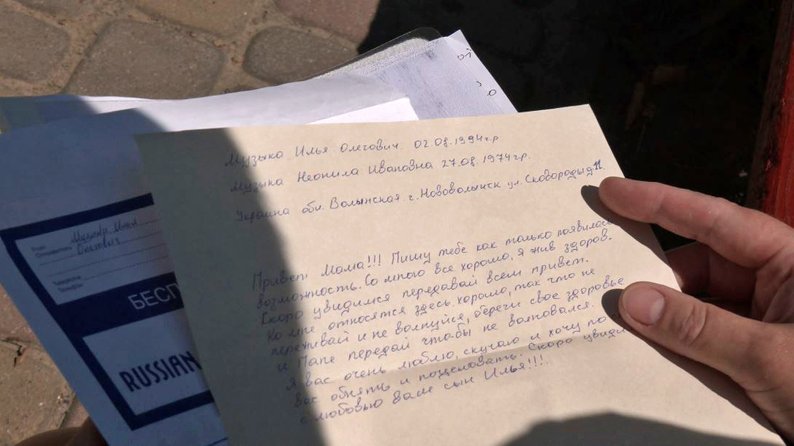 Музыка Илья Олегович. 02.08.1994г.р
Музыка Неонила Ивановна 27.08.1974г.р.
Украина обл. Волынская. г. Нововолынск ул. Сковороды д 11.
Привет Мама!!! Пишу тебе как только появилась
возможность. Со мной все хорошо, я жив здоров.
Скоро увидимся передавай всем привет.
Ко мне относятся здесь хорошо, так что не
переживай и не волнуйся, береги свое здоровье
и Папе передай чтобы не волновался.
Я вас очень люблю, скучаю и хочу
вас обнять и поцеловать. Скоро увиди
с любовью ваш сын Илья!!!
Илья
Олегович
БЕСП
RUSSIAN